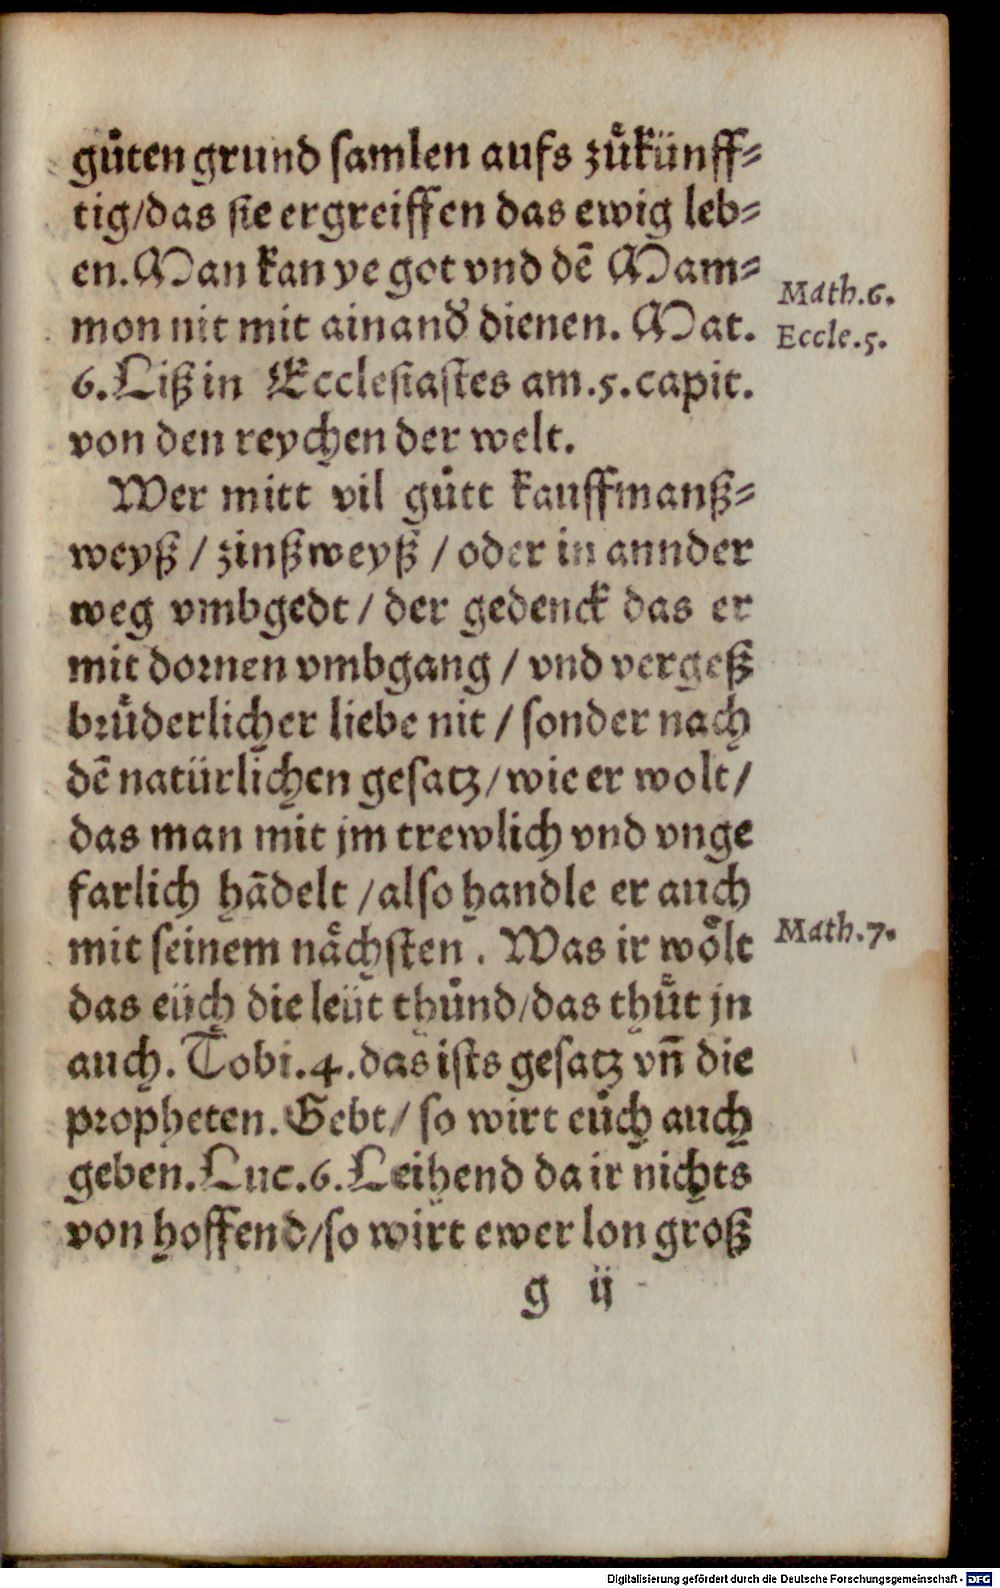 gůten grund samlen aufs zůkünff⸗
tig/das sie ergreiffen das ewig leb⸗
en. Man kan ye got vnd dē Mam⸗
mon nit mit ainand̄ dienen. Mat.
Math.6.
Eccle.5.
6. Liß in Ecclesiastes am.5.capit.
von den reychen der welt.
Wer mitt vil gůtt kauffmanß⸗
weyß / zinßweyß / oder in annder
weg vmbgedt / der gedenck das er
mit dornen vmbgang / vnd vergeß
brůderlicher liebe nit / sonder nach
dē natürlichen gesatz/wie er wolt/
das man mit jm trewlich vnd vnge
farlich hādelt /also handle er auch
mit seinem nåchsten. Was ir wőlt
Math.7.
das eüch die leüt thůnd/das thůt jn
auch. Tobi.4.das ists gesatz vn̄ die
propheten. Gebt/ so wirt eüch auch
geben. Luc.6. Leihend da ir nichts
von hoffend/so wirt ewer lon groß
g ij
Digitalisierung gefördert durch die Deutsche Forschungsgemeinschaft - DFG